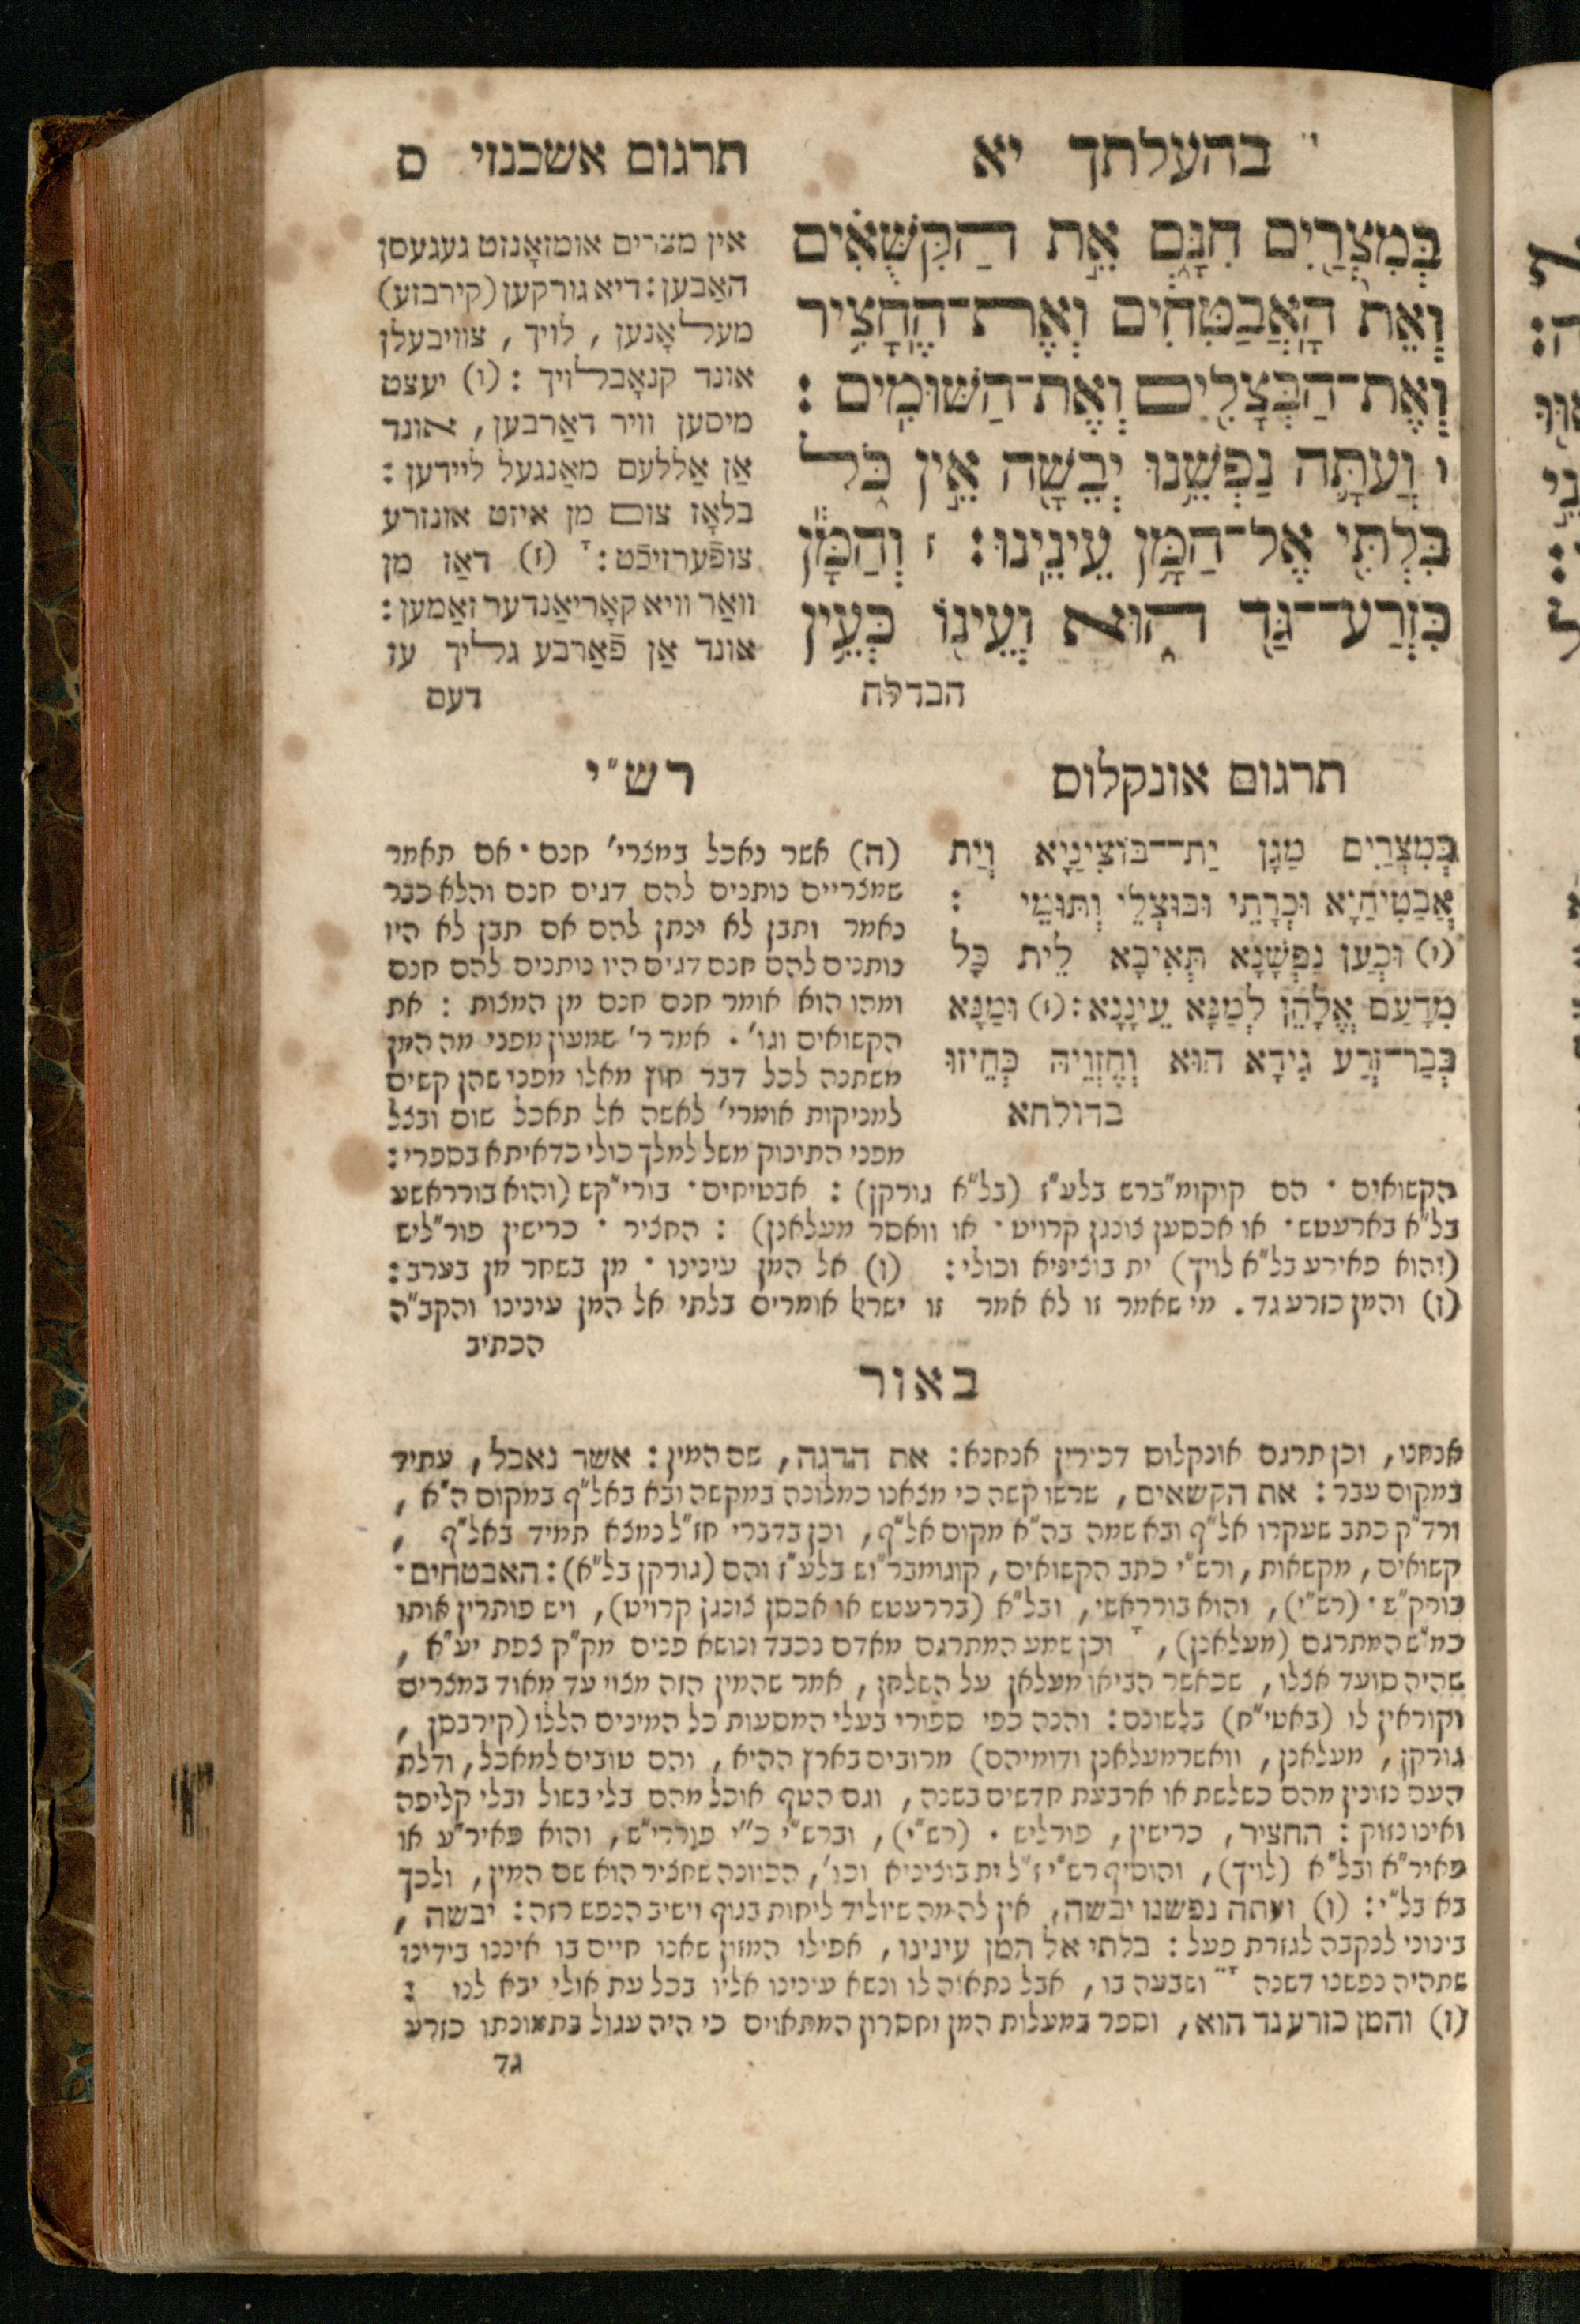 בהעלתך יא
תרגום אשכנזי ס
בְּמִצְרַיִם חִנָּם אֵת הַקִּשֻּׁאִים
וְאֵת הָאֲבַטִּחִים וְאֶת־הֶחָצִיר
וְאֶת־הַבְּצָלִים וְאֶת־הַשּׁוּמִים :
ו וְעַתָּה נַפְשֵׁנוּ יְבֵשָׁה אֵין כֹּל
בִּלְתִּי אֶל־הַמָּן עֵינֵינוּ : ז וְהַמָּן
כִּזְרַע־גַּד הוּא וְעֵינוֹ כְּעֵין
הבדלח
אין מצרים אומזאָנזט געגעסן
האַבען: דיא גורקען (קירבזע)
מעלאָנען , לויך , צוויבעלן
אונד קנאָבלויך : (ו) יעצט
מיסען וויר דאַרבען, אונד
אַן אַללעם מאַנגעל ליידען :
בלאָז צום מן איזט אונזרע
צופֿערזיכֿט : (ז) דאַז מן
וואַר וויא קאָריאַנדער זאַמען :
אונד אַן פֿאַרבע גליך עז
דעם
תרגום אונקלוס
בְּמִצְרַיִם מַגָּן יַת־בּוֹצִינַיָא וְיַת
אֲבַטִיחַיָא וּכְרָתֵי וּבוּצְלֵי וְתּוּמֵי :
(ו) וּכְעַן נַפְשָׁנָא תְּאִיבָא לֵית כָּל
מִדָעַם אֱלָהֵן לְמַנָּא עֵינָנָא : (ז) וּמַנָּא
כְּבַר־זְרַע גִידָא הוּא וְחֶזְוֵיהּ כְּחֵיזוּ
בדולחא
רש"י
(ה) אשר נאכל במצרי' חנם · אם תאמר
שמצריים נותנים להם דגים חנם והלא כבר
נאמר ותבן לא ינתן להם אם תבן לא היו
נותנים להם חנם דגים היו נותנים להם חנם
ומהו הוא אומר חנם חנם מן המצות : את
הקשואים וגו' . אמר ר' שמעון מפני מה המן
משתנה לכל דבר חוץ מאלו מפני שהן קשים
למניקות אומרי' לאשה אל תאכל שום ובצל
מפני התינוק משל למלך כולי כדאיתא בספרי :
הקשואים · הם קוקומ"ברש בלע"ז (בל"א גורקן) : אבטיחים · בורי"קש (והוא בורראשע
בל"א בארעטש · או אכסען צונגן קרויט · או וואסר מעלאנן) : החציר · כרישין פור"ליש
(והוא פאירע בל"א לויך) ית בוציניא וכולי : (ו) אל המן עינינו · מן בשחר מן בערב :
(ז) והמן כזרע גד . מי שאמר זו לא אמר זו ישראל אומרים בלתי אל המן עינינו והקב"ה
הכתיב
באור
אנחנו, וכן תרגם אונקלוס דכירין אנחנא : את הדגה, שם המין : אשר נאכל, עתיד
במקום עבר : את הקשאים, שרשו קשה כי מצאנו כמלונה במקשה ובא באל"ף במקום ה"א ,
ורד"ק כתב שעקרו אל"ף ובא שמה בה"א מקום אל"ף, וכן בדברי חז"ל נמצא תמיד באל"ף ,
קשואים, מקשאות, ורש"י כתב הקשואים, קוגומבר"יש בלע"ז והם (גורקן בל"א) : האבטחים ·
בורק"ש · (רש"י), והוא בורראשי, ובל"א (בררעטש או אכסן צונגן קרויט), ויש פותרין אותו
כמ"ש המתרגם (מעלאנן), וכן שמע המתרגם מאדם נכבד ונושא פנים מק"ק צפת יע"א ,
שהיה סועד אצלו, שכאשר הביאו מעלאן על השלחן, אמר שהמין הזה מצוי עד מאוד במצרים
וקוראין לו (באטי"ח) בלשונם : והנה כפי ספורי בעלי המסעות כל המינים הללו (קירבסן ,
גורקן, מעלאנן, וואשרמעלאנן ודומיהם) מרובים בארץ ההיא, והם טובים למאכל, ודלת
העם נזונין מהם כשלשת או ארבעת חדשים בשנה, וגם הטף אוכל מהם בלי בשול ובלי קליפה
ואינו נזוק : החציר, כרישין, פורליש · (רש"י), וברש"י כ"י פוררי"ש, והוא פאיר"ע או
פאיר"א ובל"א (לויך), והוסיף רש"י ז"ל ית בוציניא וכו', הכוונה שחציר הוא שם המין, ולכך
בא בל"י : (ו) ועתה נפשנו יבשה, אין לה מה שיוליד ליחות בגוף וישיב הנפש רזה : יבשה ,
בינוני לנקבה לגזרת פעל : בלתי אל המן עינינו, אפילו המזון שאנו חיים בו איננו בידינו
שתהיה נפשנו דשנה ושבעה בו, אבל נתאוה לו ונשא עינינו אליו בכל עת אולי יבא לנו :
(ז) והמן כזרע גד הוא, וספר במעלות המן וחסרון המתאוים כי היה עגול בתמונתו כזרע
גד